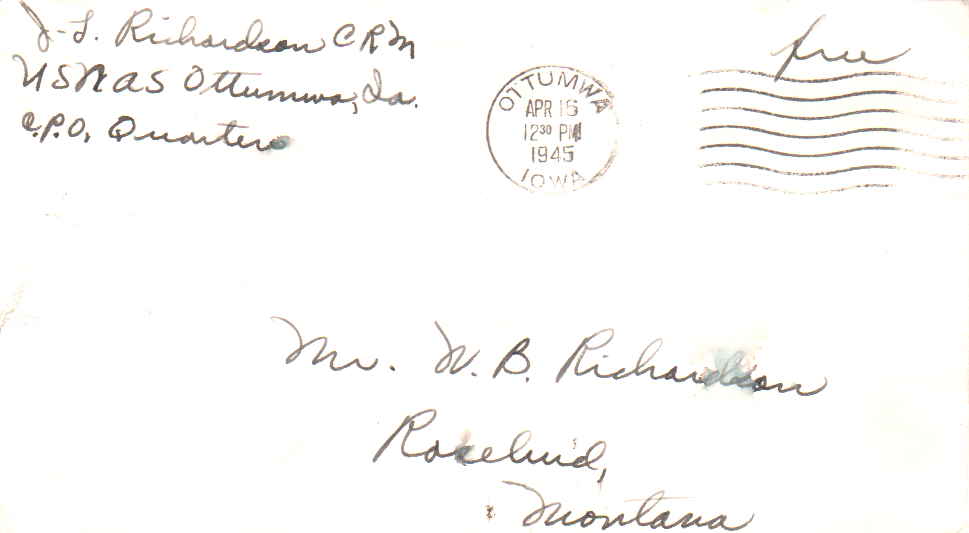 J. L. Richardson CRM
USNAS Ottumwa, Ia.
C.P.O. Quarters
free
OTTUMWA
APR 16
12 30 PM
1945
IOWA
Mr. W. B. Richardson
Rosebud,
Montana